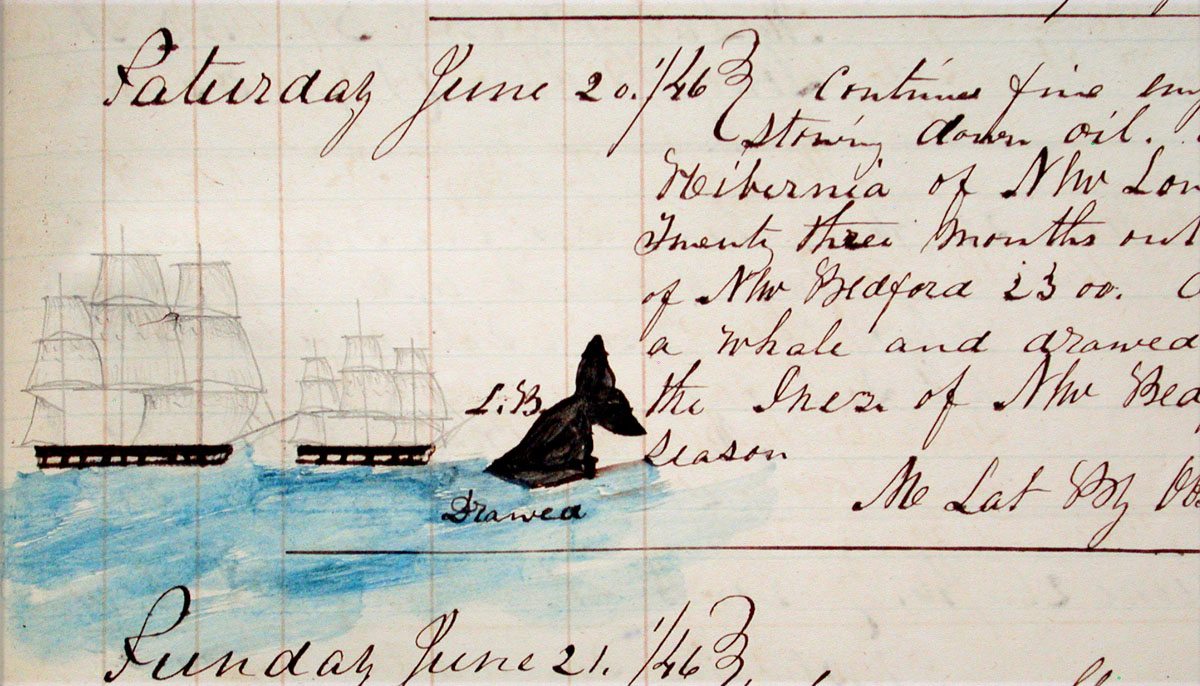 Saturday June 20. 1/46 Continues fine em
stowing down oil.
Hibernia of New Lon
Twenty three months out
of New Bedford 2300.
a whale and drawed
L.B. the Inez of New Bed
season
Drawed
No Lat By Obs
Sunday June 21. 1/46